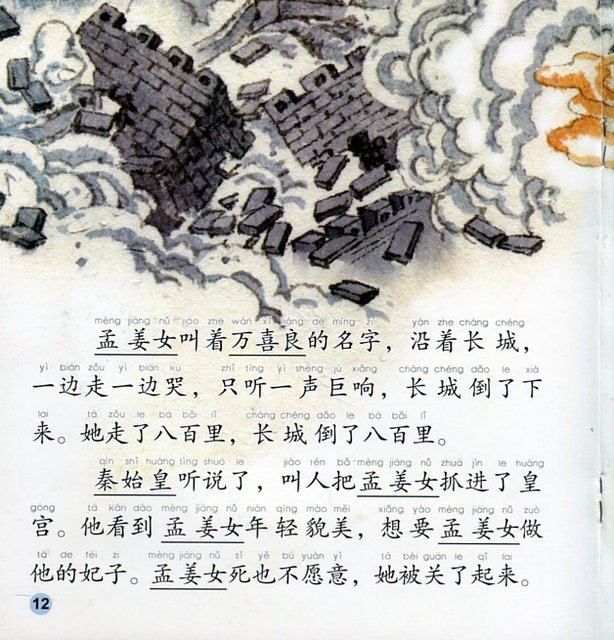 mèng jiāng nǚ jiào zhe wàn xǐ liáng de míng zì yán zhe cháng chéng
孟姜女叫着万喜良的名字，沿着长城，
yì biān zǒu yì biān kū zhǐ tīng yì shēng jù xiǎng cháng chéng dǎo le xià
一边走一边哭，只听一声巨响，长城倒了下
lai tā zǒu le bā bǎi lǐ cháng chéng dǎo le bā bǎi lǐ
来。她走了八百里，长城倒了八百里。
qín shǐ huáng tīng shuō le jiào rén bǎ mèng jiāng nǚ zhuā jìn le huáng
秦始皇听说了，叫人把孟姜女抓进了皇
gōng tā kàn dào mèng jiāng nǚ nián qīng mào měi xiǎng yào mèng jiāng nǚ zuò
宫。他看到孟姜女年轻貌美，想要孟姜女做
tā de fēi zi mèng jiāng nǚ sǐ yě bú yuàn yì tā bèi guān le qǐ lai
他的妃子。孟姜女死也不愿意，她被关了起来。
12